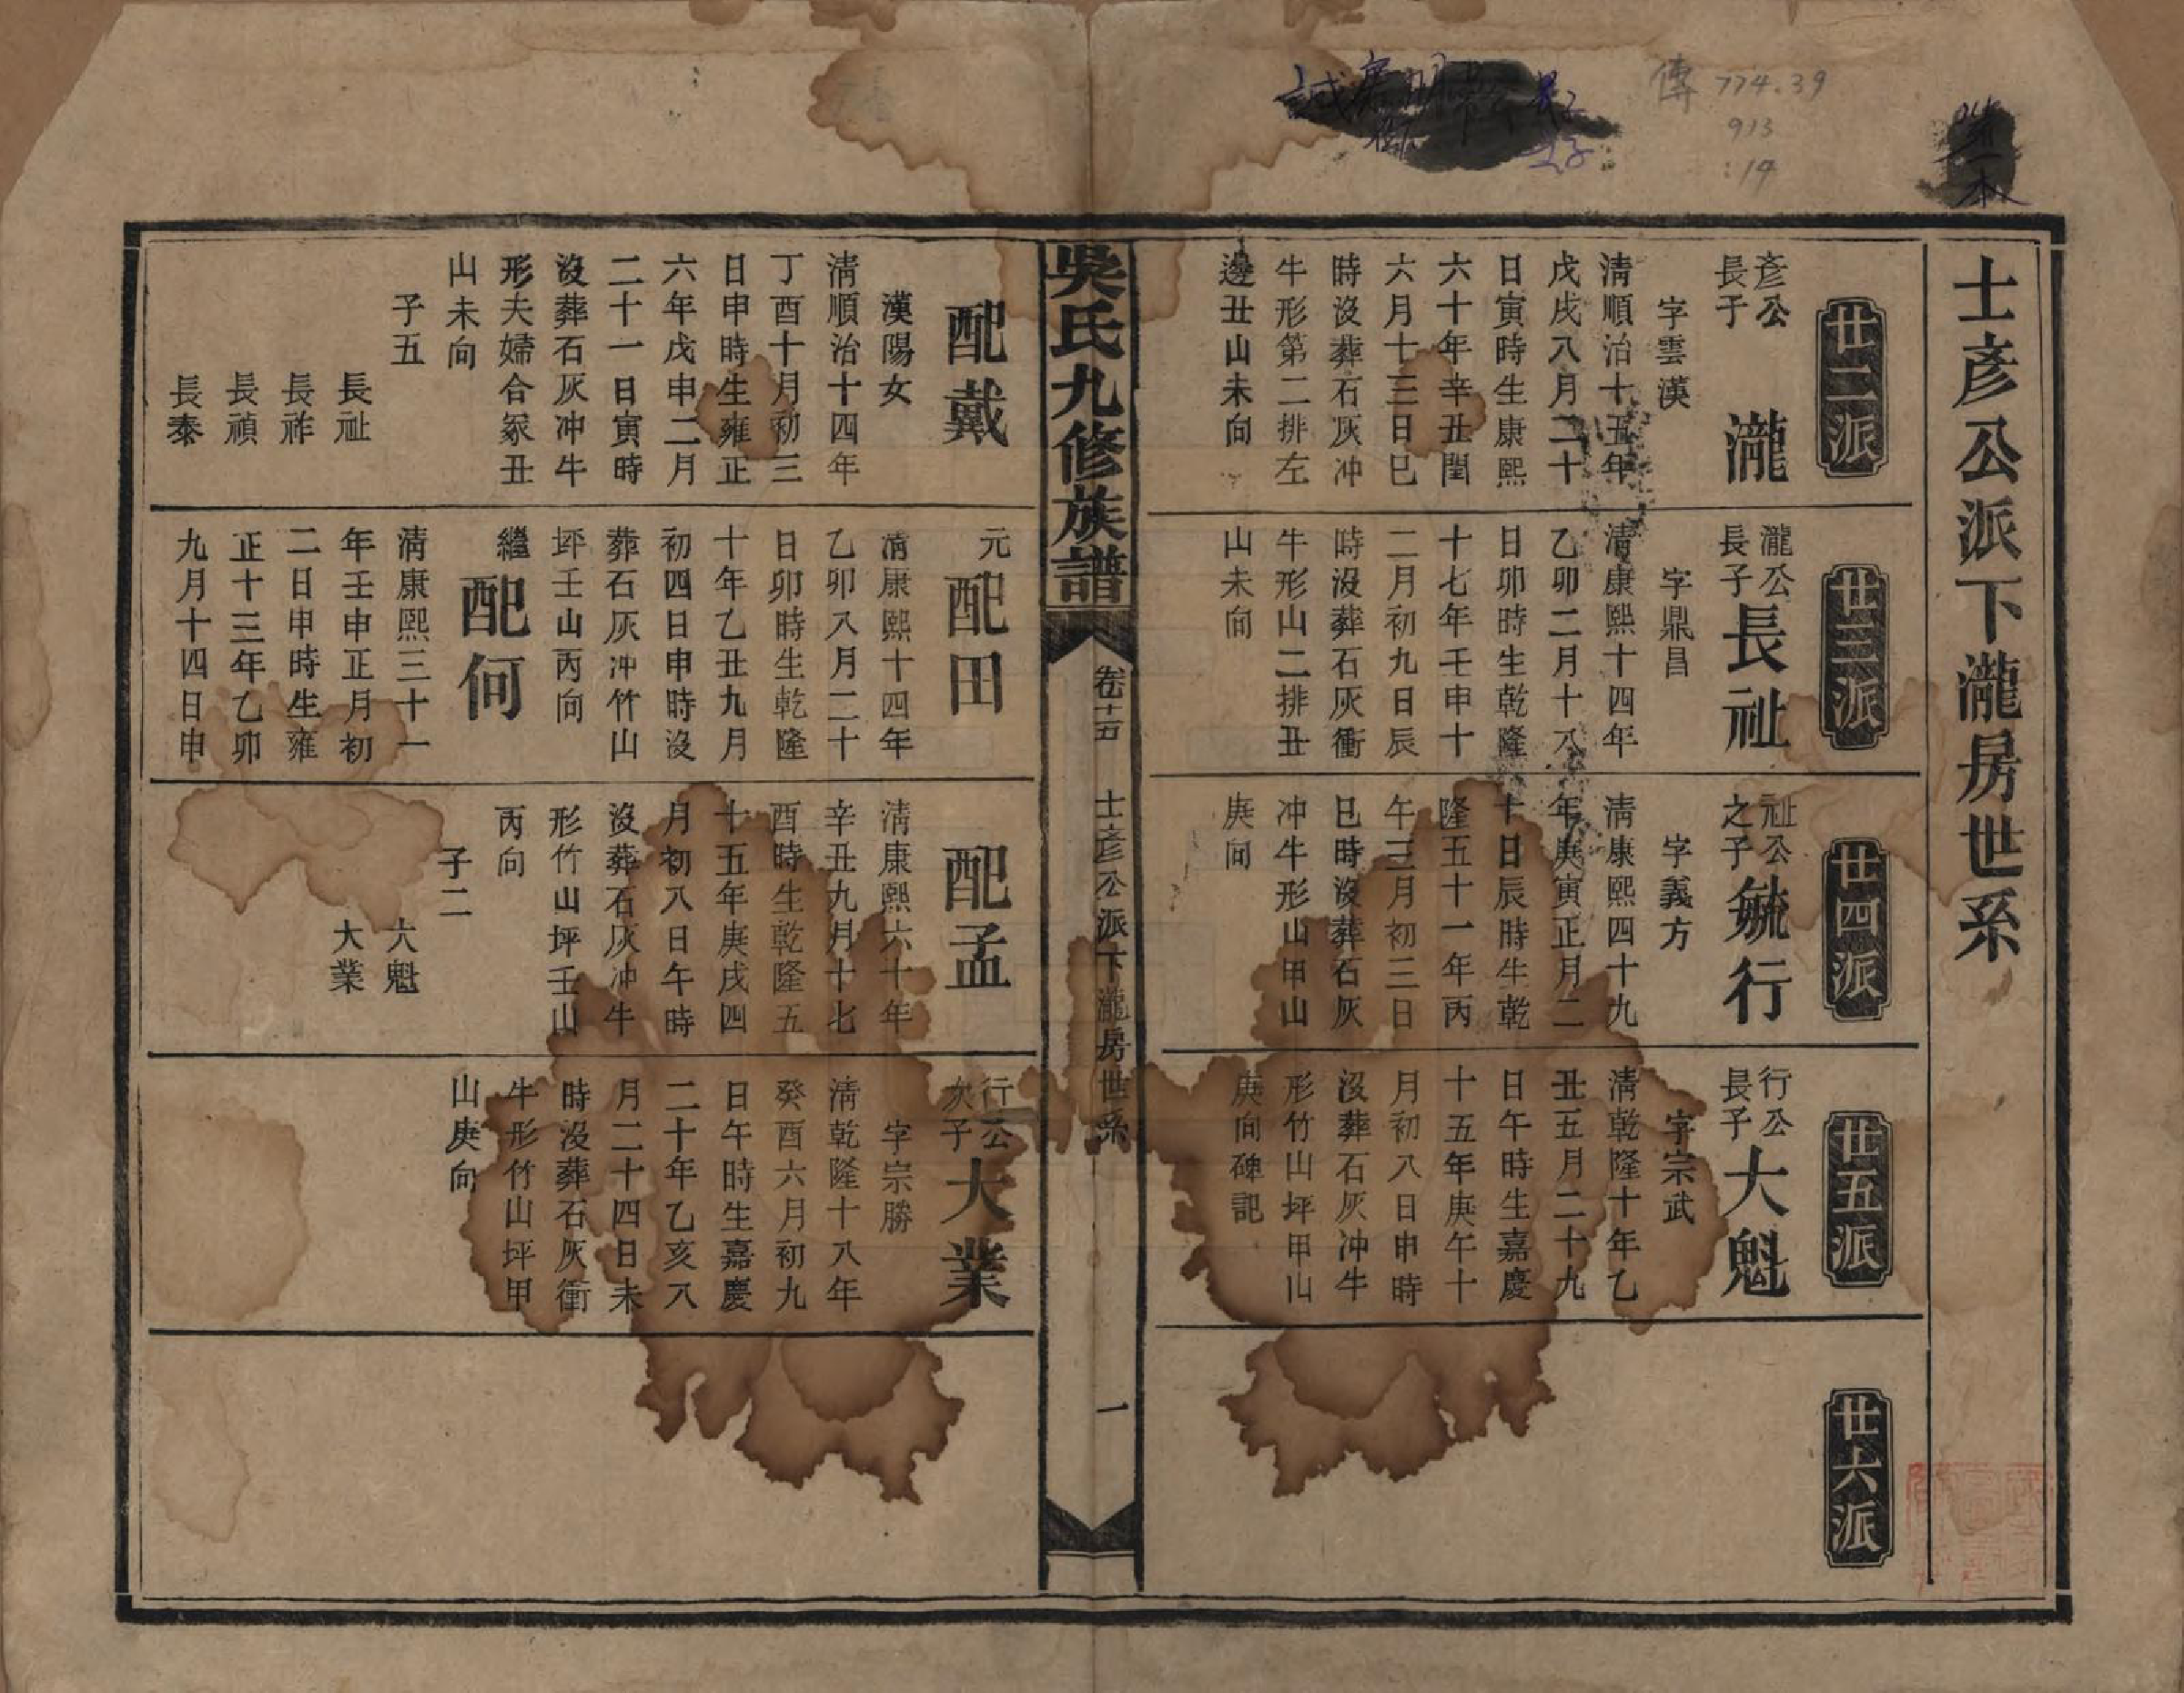 傳 774.39
913
:14
士彥公派下瀧房世系
廿二派
彥公
長子
瀧
字雲漢
清順治十五年
戊戌八月二十
日寅時生康熙
六十年辛丑閏
六月十三日巳
時沒葬石灰冲
牛形第二排左
邊丑山未向
廿三派
瀧公
長子
長祉
字鼎昌
清康熙十四年
乙卯二月十八
日卯時生乾隆
十七年壬申十
二月初九日辰
時沒葬石灰衝
牛形山二排丑
山未向
廿四派
祉公
之子
毓行
字義方
清康熙四十九
年庚寅正月二
十日辰時生乾
隆五十一年丙
午三月初三日
巳時沒葬石灰
冲牛形山甲山
庚向
廿五派
行公
長子
大魁
字宗武
清乾隆十年乙
丑五月二十九
日午時生嘉慶
十五年庚午十
月初八日申時
沒葬石灰冲牛
形竹山坪甲山
庚向碑記
廿六派
吳氏九修族譜
卷十五
士彥公派下瀧房世系
一
配戴
漢陽女
清順治十四年
丁酉十月初三
日申時生雍正
六年戊申二月
二十一日寅時
沒葬石灰冲牛
形夫婦合冢丑
山未向
子五
長祉
長祚
長禎
長泰
元
配田
清康熙十四年
乙卯八月二十
日卯時生乾隆
十年乙丑九月
初四日申時沒
葬石灰冲竹山
坪壬山丙向
繼
配何
清康熙三十一
年壬申正月初
二日申時生雍
正十三年乙卯
九月十四日申
配孟
清康熙六十年
辛丑九月十七
酉時生乾隆五
十五年庚戌四
月初八日午時
沒葬石灰冲牛
形竹山坪壬山
丙向
子二
大魁
大業
行公
次子
大業
字宗勝
清乾隆十八年
癸酉六月初九
日午時生嘉慶
二十年乙亥八
月二十四日未
時沒葬石灰衝
牛形竹山坪甲
山庚向